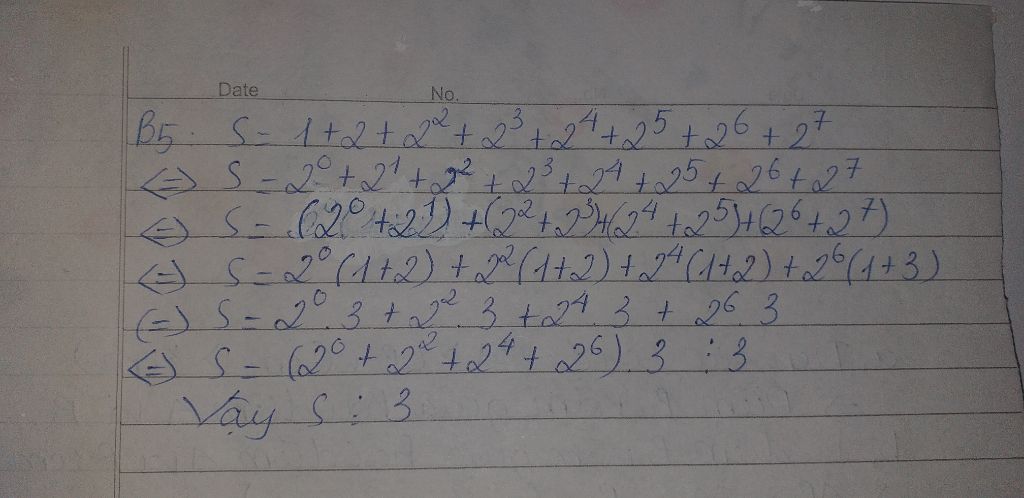 Date No.
B5: S = 1 + 2 + 2² + 2³ + 2⁴ + 2⁵ + 2⁶ + 2⁷
<=> S = 2⁰ + 2¹ + 2² + 2³ + 2⁴ + 2⁵ + 2⁶ + 2⁷
<=> S = (2⁰ + 2¹) + (2² + 2³) + (2⁴ + 2⁵) + (2⁶ + 2⁷)
<=> S = 2⁰ (1+2) + 2² (1+2) + 2⁴ (1+2) + 2⁶ (1+3)
(=) S = 2⁰ . 3 + 2² . 3 + 2⁴ . 3 + 2⁶ . 3
<=> S = (2⁰ + 2² + 2⁴ + 2⁶) . 3 ⋮ 3
Vậy S ⋮ 3